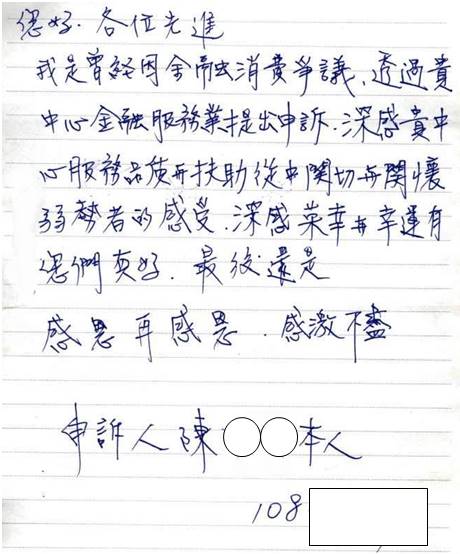 您好．各位先進
我是曾經因金融消費爭議、透過貴
中心金融服務業提出申訴．深感貴中
心服務品質與扶助從中關切與關懷
弱勢者的感受．深感榮幸與幸運有
您們真好．最後還是
感恩再感恩．感激不盡
申訴人陳○○本人
108